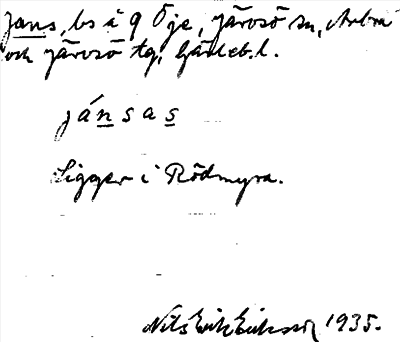 Jans, bs å 9 Öje, Järvsö sn, Arbrå
och Järvsö tg, Gävleb. l.
jánsas
Ligger i Rödmyra.
Nils Erik Eriksson 1935.